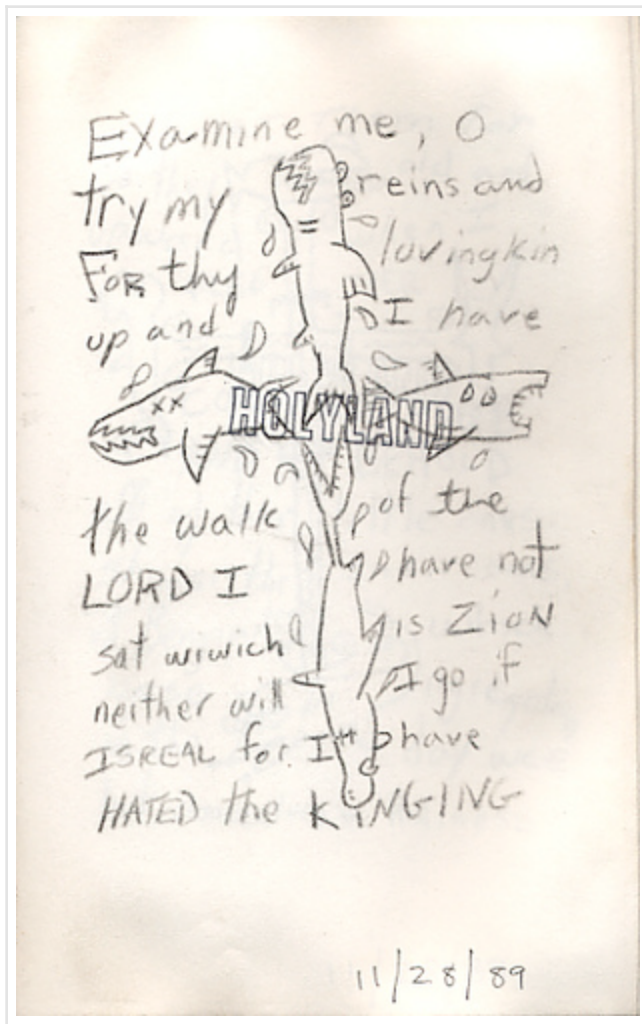 Examine me, O
try my reins and
For thy lovingkin
up and I have
HOLYLAND
the walk of the
LORD I have not
sat wiwich is Zion
neither will I go if
ISREAL for I have
HATED the KINGING
11/28/89